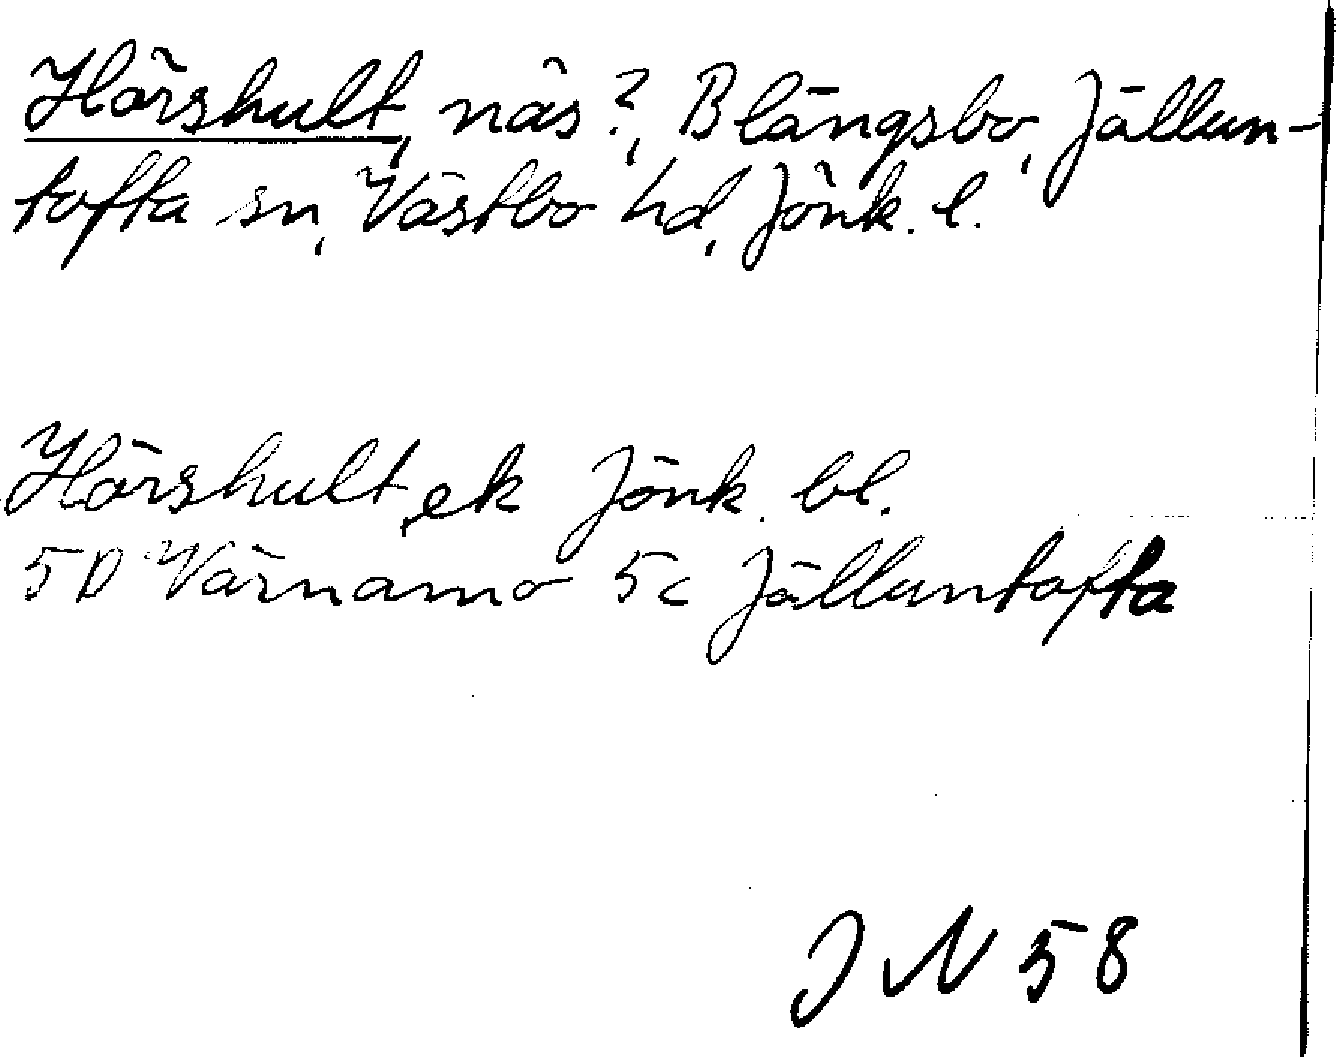 Hörshult, näs?, Blängsbo, Jällun-
tofta sn, Västbo hd, Jönk. l.
Hörshult, ek Jönk. bl.
5D Värnamo 5c Jälluntofta
J N 58